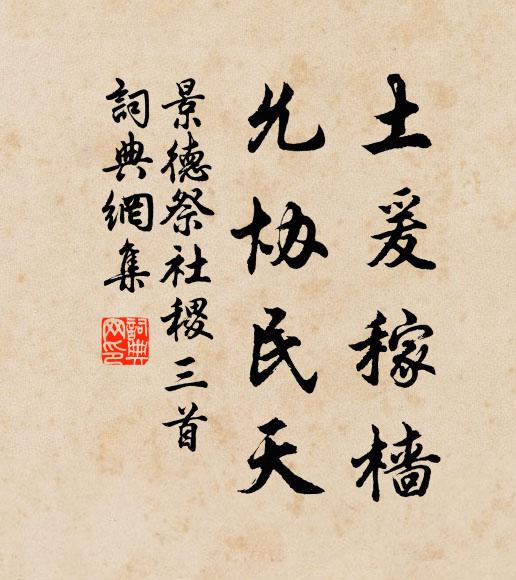 土爰稼樯
允协民天
景德祭社稷三首
詞典網集
詞典網印